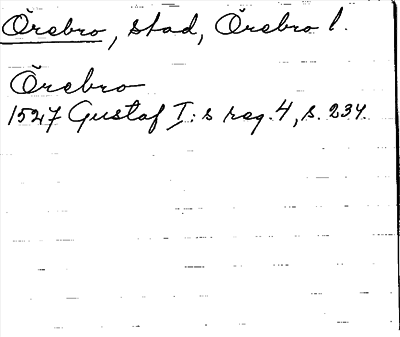 Örebro, stad, Örebro l.
Örebro
1527 Gustaf I:s reg. 4, s. 234.